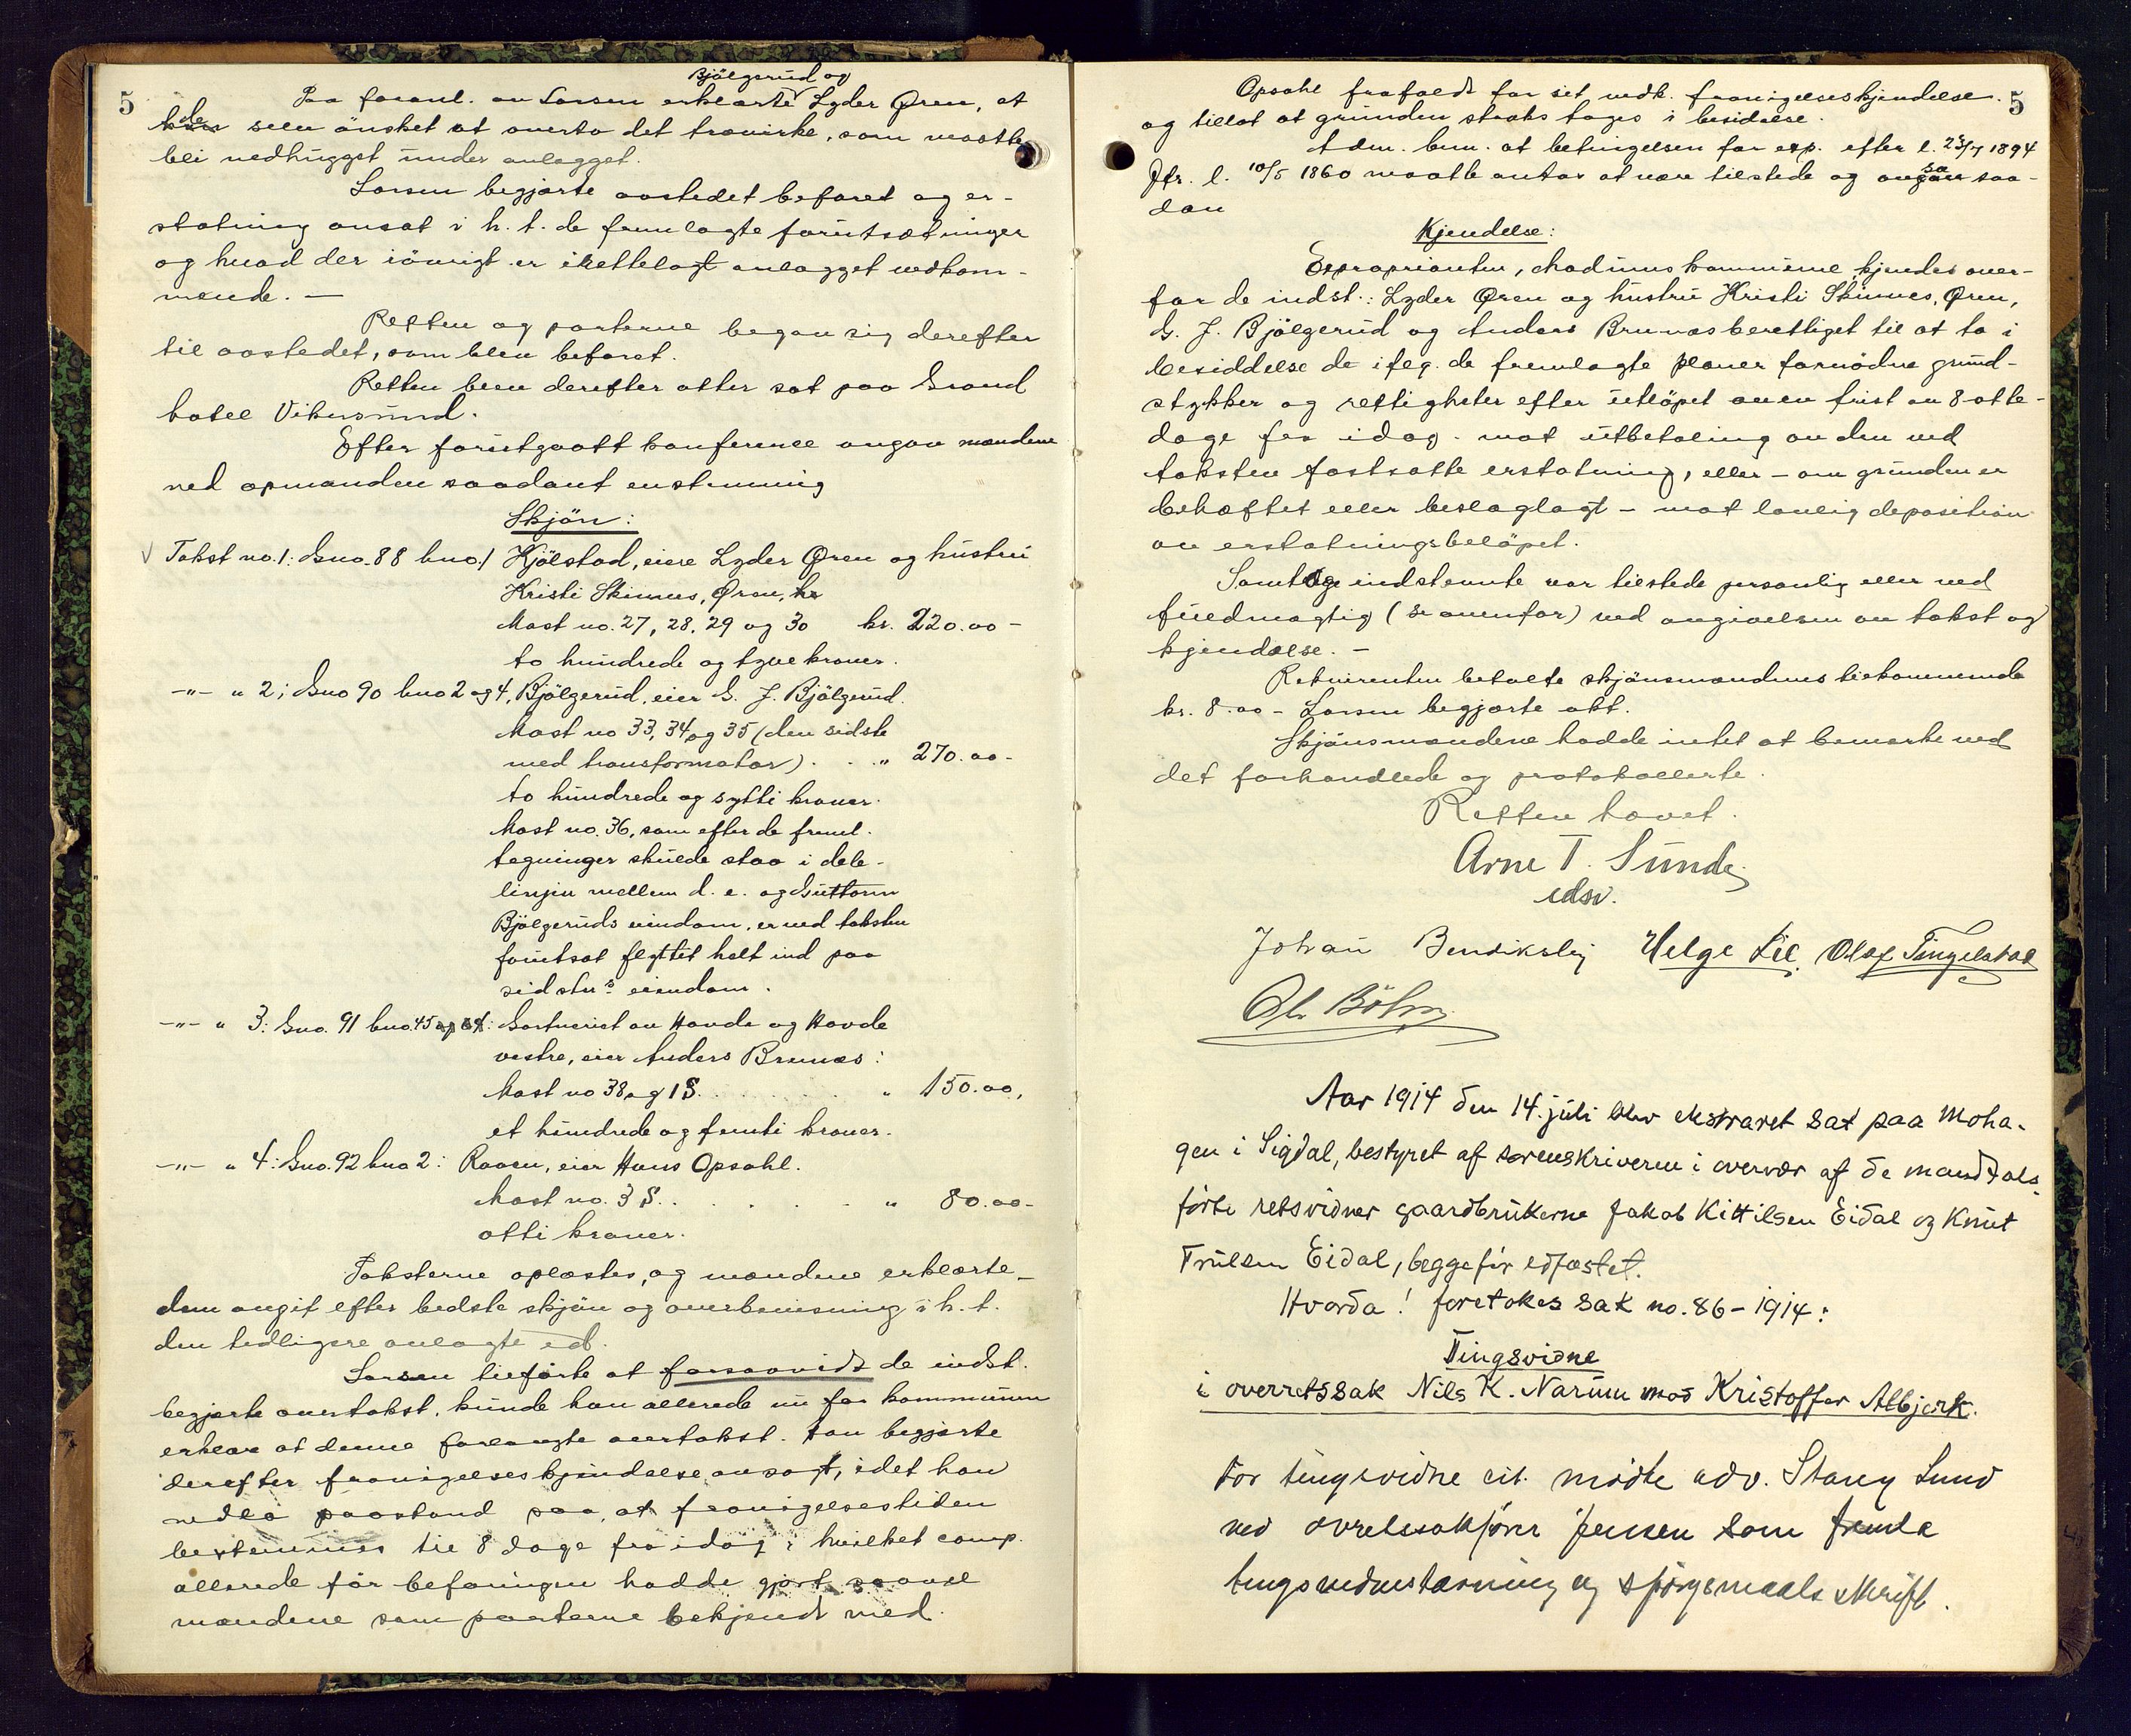 5
Bjölgerud og
Paa foranl. av Larsen erklærte Lyder Øren, at
de selv ønsket at overta det trævirke, som maatte
bli nedhugget under anlægget.
Larsen begjærte aastedet befaret og er-
statning ansat i h. t. de fremlagte forutsætninger
og hvad der iövrigt er irettelagt anlægget vedkom-
mende. —
Retten og parterne begav sig derefter
til aastedet, som blev befaret.
Retten blev derefter atter sat paa Grand
hotel Vikersund.
Efter forutgaatt konferance avgav mændene
med opmanden saadant enstemmig
Skjön:
√ Takst no. 1: Gno. 88 bno. 1 Hjölstad, eiere Lyder Øren og hustru
Kristi Skinnes, Øren,
Mast no. 27, 28, 29 og 30 kr. 220.00 -
to hundrede og tyve kroner.
-"- " 2: Gno 90 bno 2 og 4, Bjölgerud, eier G. J. Bjölgerud.
Mast no 33, 34 og 35 (den sidste
med transformator) . . " 270.00 -
to hundrede og sytti kroner.
Mast no. 36, som efter de freml.
tegninger skulde staa i dele-
linjen mellem d. e. og Guttorm
Bjölgeruds eiendom, er ved taksten
forutsat flyttet helt ind paa
sidstn.s eiendom.
-"- " 3: Gno. 91 bno. 45 og 64: Gartneriet av Hovde og Hovde
vestre, eier Anders Brunæs:
Mast no 38 og 1 S. . . . . " 150.00,
et hundrede og femti kroner.
-"- " 4: Gno. 92 bno 2: Raaen, eier Hans Opsahl.
Mast no. 3 S. . . . . . " 80.00 -
otti kroner.
Taksterne oplæstes, og mændene erklærte
dem avgit efter bedste skjön og overbevisning i h. t.
den tidligere avlagte ed.
Larsen tilförte at forsaavidt de indst.
begjærte overtakst, kunde han allerede nu for kommunen
erklære at denne forlangte overtakst. Han begjærte
derefter fravigelseskjendelse avsagt, idet han
nedla paastand paa, at fravigelsestiden
bestemmes til 8 dage fra idag, hvilket comp.
allerede för befaringen hadde gjort saavel
mændene som parterne bekjendt med.
5
Opsahl frafaldt for sit vedk. fravigelseskjendelse
og tillot at grunden straks tages i besiddelse.
Adm. bem. at betingelsen for exp. efter l. 23/7 1894
Jfr. l. 10/5 1860 maatte antas at være tilstede og avsa saa-
dan
Kjendelse:
Exproprianten, Modums kommune, kjendes over-
for de indst.: Lyder Øren og hustru Kristi Skinnes, Øren,
G. J. Bjölgerud og Anders Brunæs berettiget til at ta i
besiddelse de ifølg. de fremlagte planer fornödne grund-
stykker og rettigheter efter utlöpet av en frist av 8 otte
dage fra idag. mot utbetaling av den ved
taksten fastsatte erstatning, eller – om grunden er
behæftet eller beslaglagt – mot lovlig deposition
av erstatningsbelöpet.
Samtlige indstevnte var tilstede personlig eller ved
fuldmægtig (se ovenfor) ved avgivelsen av takst og
kjendelse. —
Rekvirenten betalte skjönsmændenes tilkommende
kr. 8.00 – Larsen begjærte akt.
Skjönsmændene hadde intet at bemerke ved
det forhandlede og protokollerte.
Retten hævet.
Arne T. Sunde
edsv.
Johan Bendiksby Helge Lie, Olaf Tingelstad
Chr. Böhn
Aar 1914 den 14. juli blev ekstraret sat paa Moha-
gen i Sigdal, bestyret af sorenskriveren i overvær af de mandtals-
förte retsvidner gaardbrukerne Jakob Kittilsen Eidal og Knut
Trulsen Eidal, begge för edfæstet.
Hvorda! foretokes sak no. 86 – 1914:
Tingsvidne
i overretssak Nils K. Narum mod Kristoffer Albjerk.
For tingsvidne cit. mödte adv. Stang Lund
ved overretssakförer Jensen som fremla
tingsvidnestævning og spörgsmaals skrift.